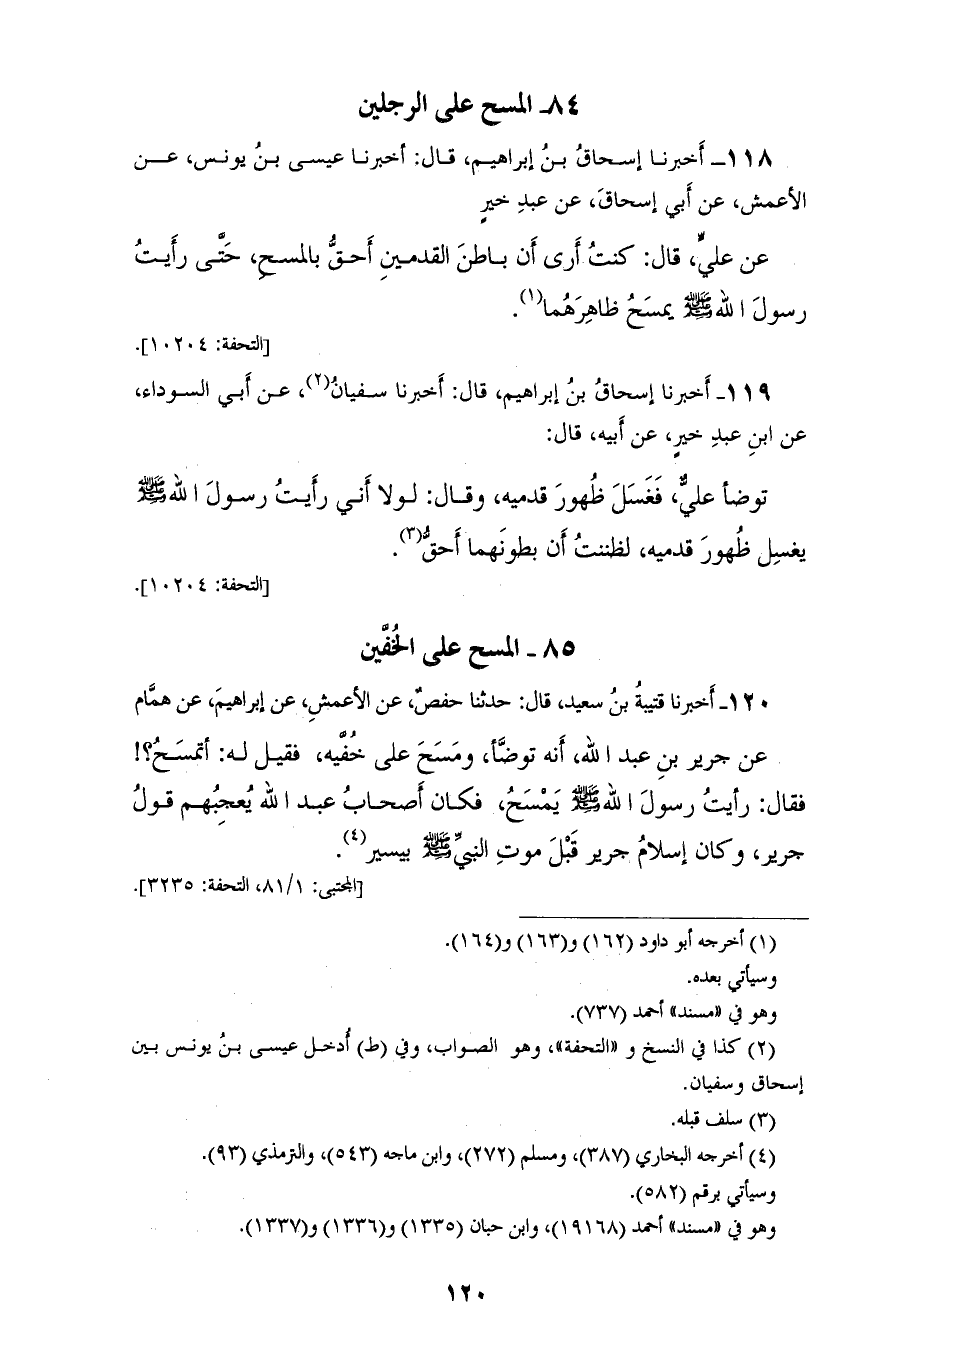 ٨٤ـ المسح على الرجلين
١١٨ـ أَخبرنا إسحاقُ بنُ إبراهيم، قال: أخبرنا عيسى بنُ يونس، عن
الأعمش، عن أَبي إسحاقَ، عن عبدِ خيرٍ
عن عليٍّ، قال: كنتُ أرى أَن باطنَ القدمينِ أَحقُّ بالمسحِ، حتَّى رأَيتُ
رسولَ الله ﷺ يمسَحُ ظاهِرَهُما(١).
[التحفة: ١٠٢٠٤].
١١٩ـ أَخبرنا إسحاقُ بنُ إبراهيم، قال: أَخبرنا سفيانُ(٢)، عن أَبي السوداء،
عن ابنِ عبدِ خيرٍ، عن أَبيه، قال:
توضأ عليٌّ، فَغَسَلَ ظُهورَ قدميه، وقال: لولا أَني رأَيتُ رسولَ الله ﷺ
يغسِل ظُهورَ قدميه، لظننتُ أَن بطونَهما أَحقُّ(٣).
[التحفة: ١٠٢٠٤].
٨٥ ـ المسح على الخُفَّين
١٢٠ـ أَخبرنا قتيبةُ بنُ سعيد، قال: حدثنا حفصٌ، عن الأعمشِ، عن إبراهيمَ، عن همَّام
عن جرير بنِ عبد الله، أَنه توضَّأ، ومَسَحَ على خُفَّيه، فقيل له: أَتمسَحُ؟!
فقال: رأَيتُ رسولَ الله ﷺ يَمْسَحُ، فكان أَصحابُ عبد الله يُعجِبُهم قولُ
جرير، وكان إسلامُ جرير قَبْلَ موتِ النبيِّ ﷺ بيسير(٤).
[المجتبى: ٨١/١، التحفة: ٣٢٣٥].
(١) أخرجه أبو داود (١٦٢) و(١٦٣) و(١٦٤).
وسيأتي بعده.
وهو في «مسند» أحمد (٧٣٧).
(٢) كذا في النسخ و «التحفة»، وهو الصواب، وفي (ط) أُدخل عيسى بنُ يونس بين
إسحاق وسفيان.
(٣) سلف قبله.
(٤) أخرجه البخاري (٣٨٧)، ومسلم (٢٧٢)، وابن ماجه (٥٤٣)، والترمذي (٩٣).
وسيأتي برقم (٥٨٢).
وهو في «مسند» أحمد (١٩١٦٨)، وابن حبان (١٣٣٥) و(١٣٣٦) و(١٣٣٧).
١٢٠